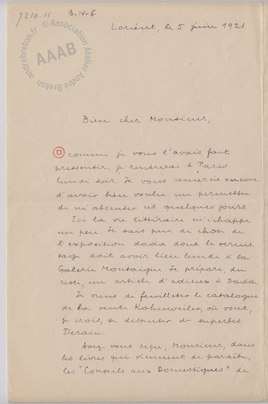 7210.11
B.IV.6
© Association Atelier André Breton
andrebreton.fr
AAAB
Lorient, le 5 juin 1921
Bien cher Monsieur,
D
comme je vous l'avais fait
pressentir, je rentrerai à Paris
lundi soir. Je vous remercie encore
d'avoir bien voulu me permettre
de m'absenter ces quelques jours.
Ici la vie littéraire m'échappe
un peu. Je sais peu de chose de
l'exposition dada dont le vernis-
sage doit avoir lieu lundi à la
Galerie Montaigne. Je prépare, du
reste, un article d'adieux à Dada.
Je viens de feuilleter le catalogue
de la vente Kahnweiler, où vont,
je crois, se disputer de superbes
Derain.
Avez-vous reçu, Monsieur, dans
les livres qui viennent de paraître,
les "Conseils aux Domestiques" de